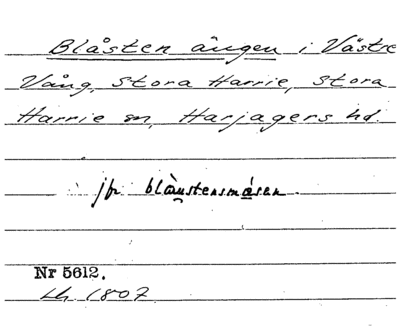 Blåsten ängen i Västre
Vång, Stora Harrie, Stora
Harrie sn, Harjagers hd.
jfr blåustensmåsen.
Nr 5612.
Lh 1807